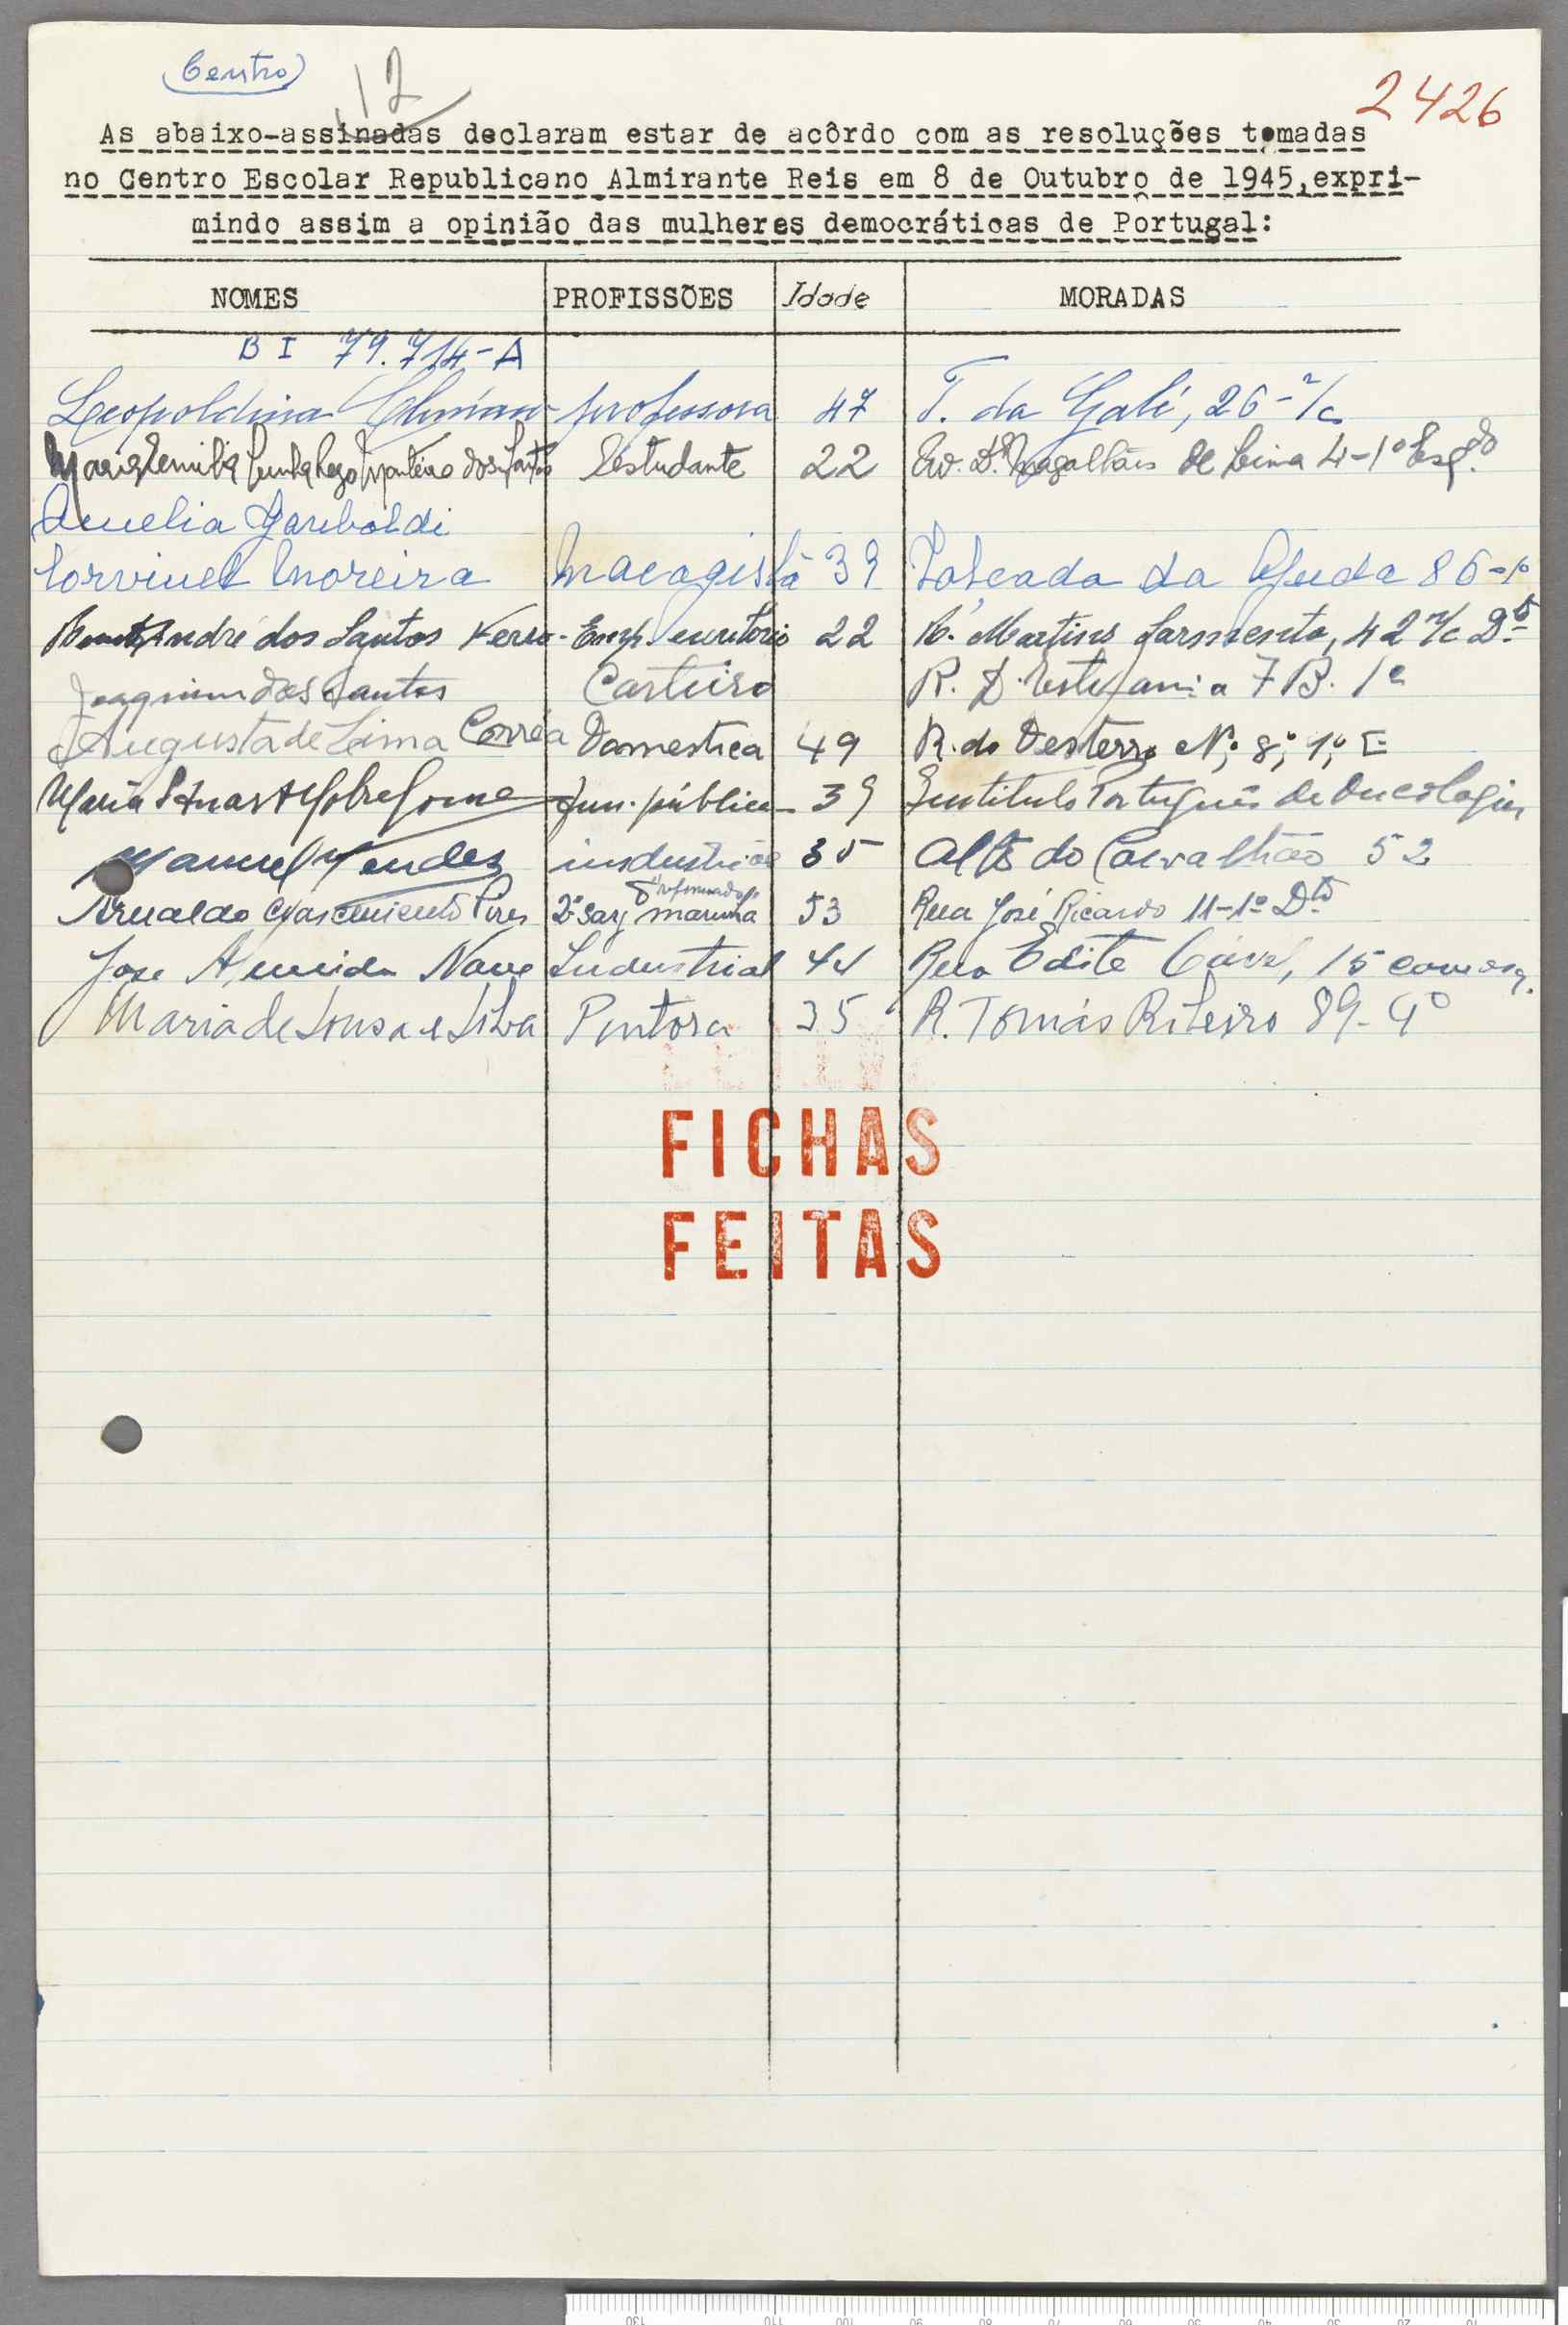 (Centro)
12
2426
As abaixo-assinadas declaram estar de acôrdo com as resoluções tomadas
no Centro Escolar Republicano Almirante Reis em 8 de Outubro de 1945, expri-
mindo assim a opinião das mulheres democráticas de Portugal:
NOMES PROFISSÕES Idade MORADAS
BI 79.714-A
Leopoldina professora 47 T. da Galé, 26-r/c
Maria Emilia Cunha Rego Monteiro dos Santos Estudante 22 Av. D. Magalhães de Lima 4-1º Esqdo
Amelia Gariboldi
Corvinel Moreira 39 Calçada da Ajuda 86-1º
André dos Santos Ferro - Emp. escritório 22 R. Martins Sarmento, 42 r/c Dto
Joaquim dos Santos Carteiro R. D. Estefania 7B. 1º
Augusta de Lima Corrêa Domestica 49 R. do Desterro Nº, 8º, 1º, E
Maria Fun. pública 39 Instituto Português de Oncologia
Manuel Mendes industrial 35 Alto do Carvalhão 52
Arnaldo Nascimento Pires 2º sarj marinha reformado 53 Rua José Ricardo 11-1º Dto
José Almeida Nave Industrial 44 Rua Edite Cavel, 15 cave esq.
Maria de Sousa e Silva Pintora 35 R. Tomás Ribeiro 89-4º
FICHAS
FEITAS